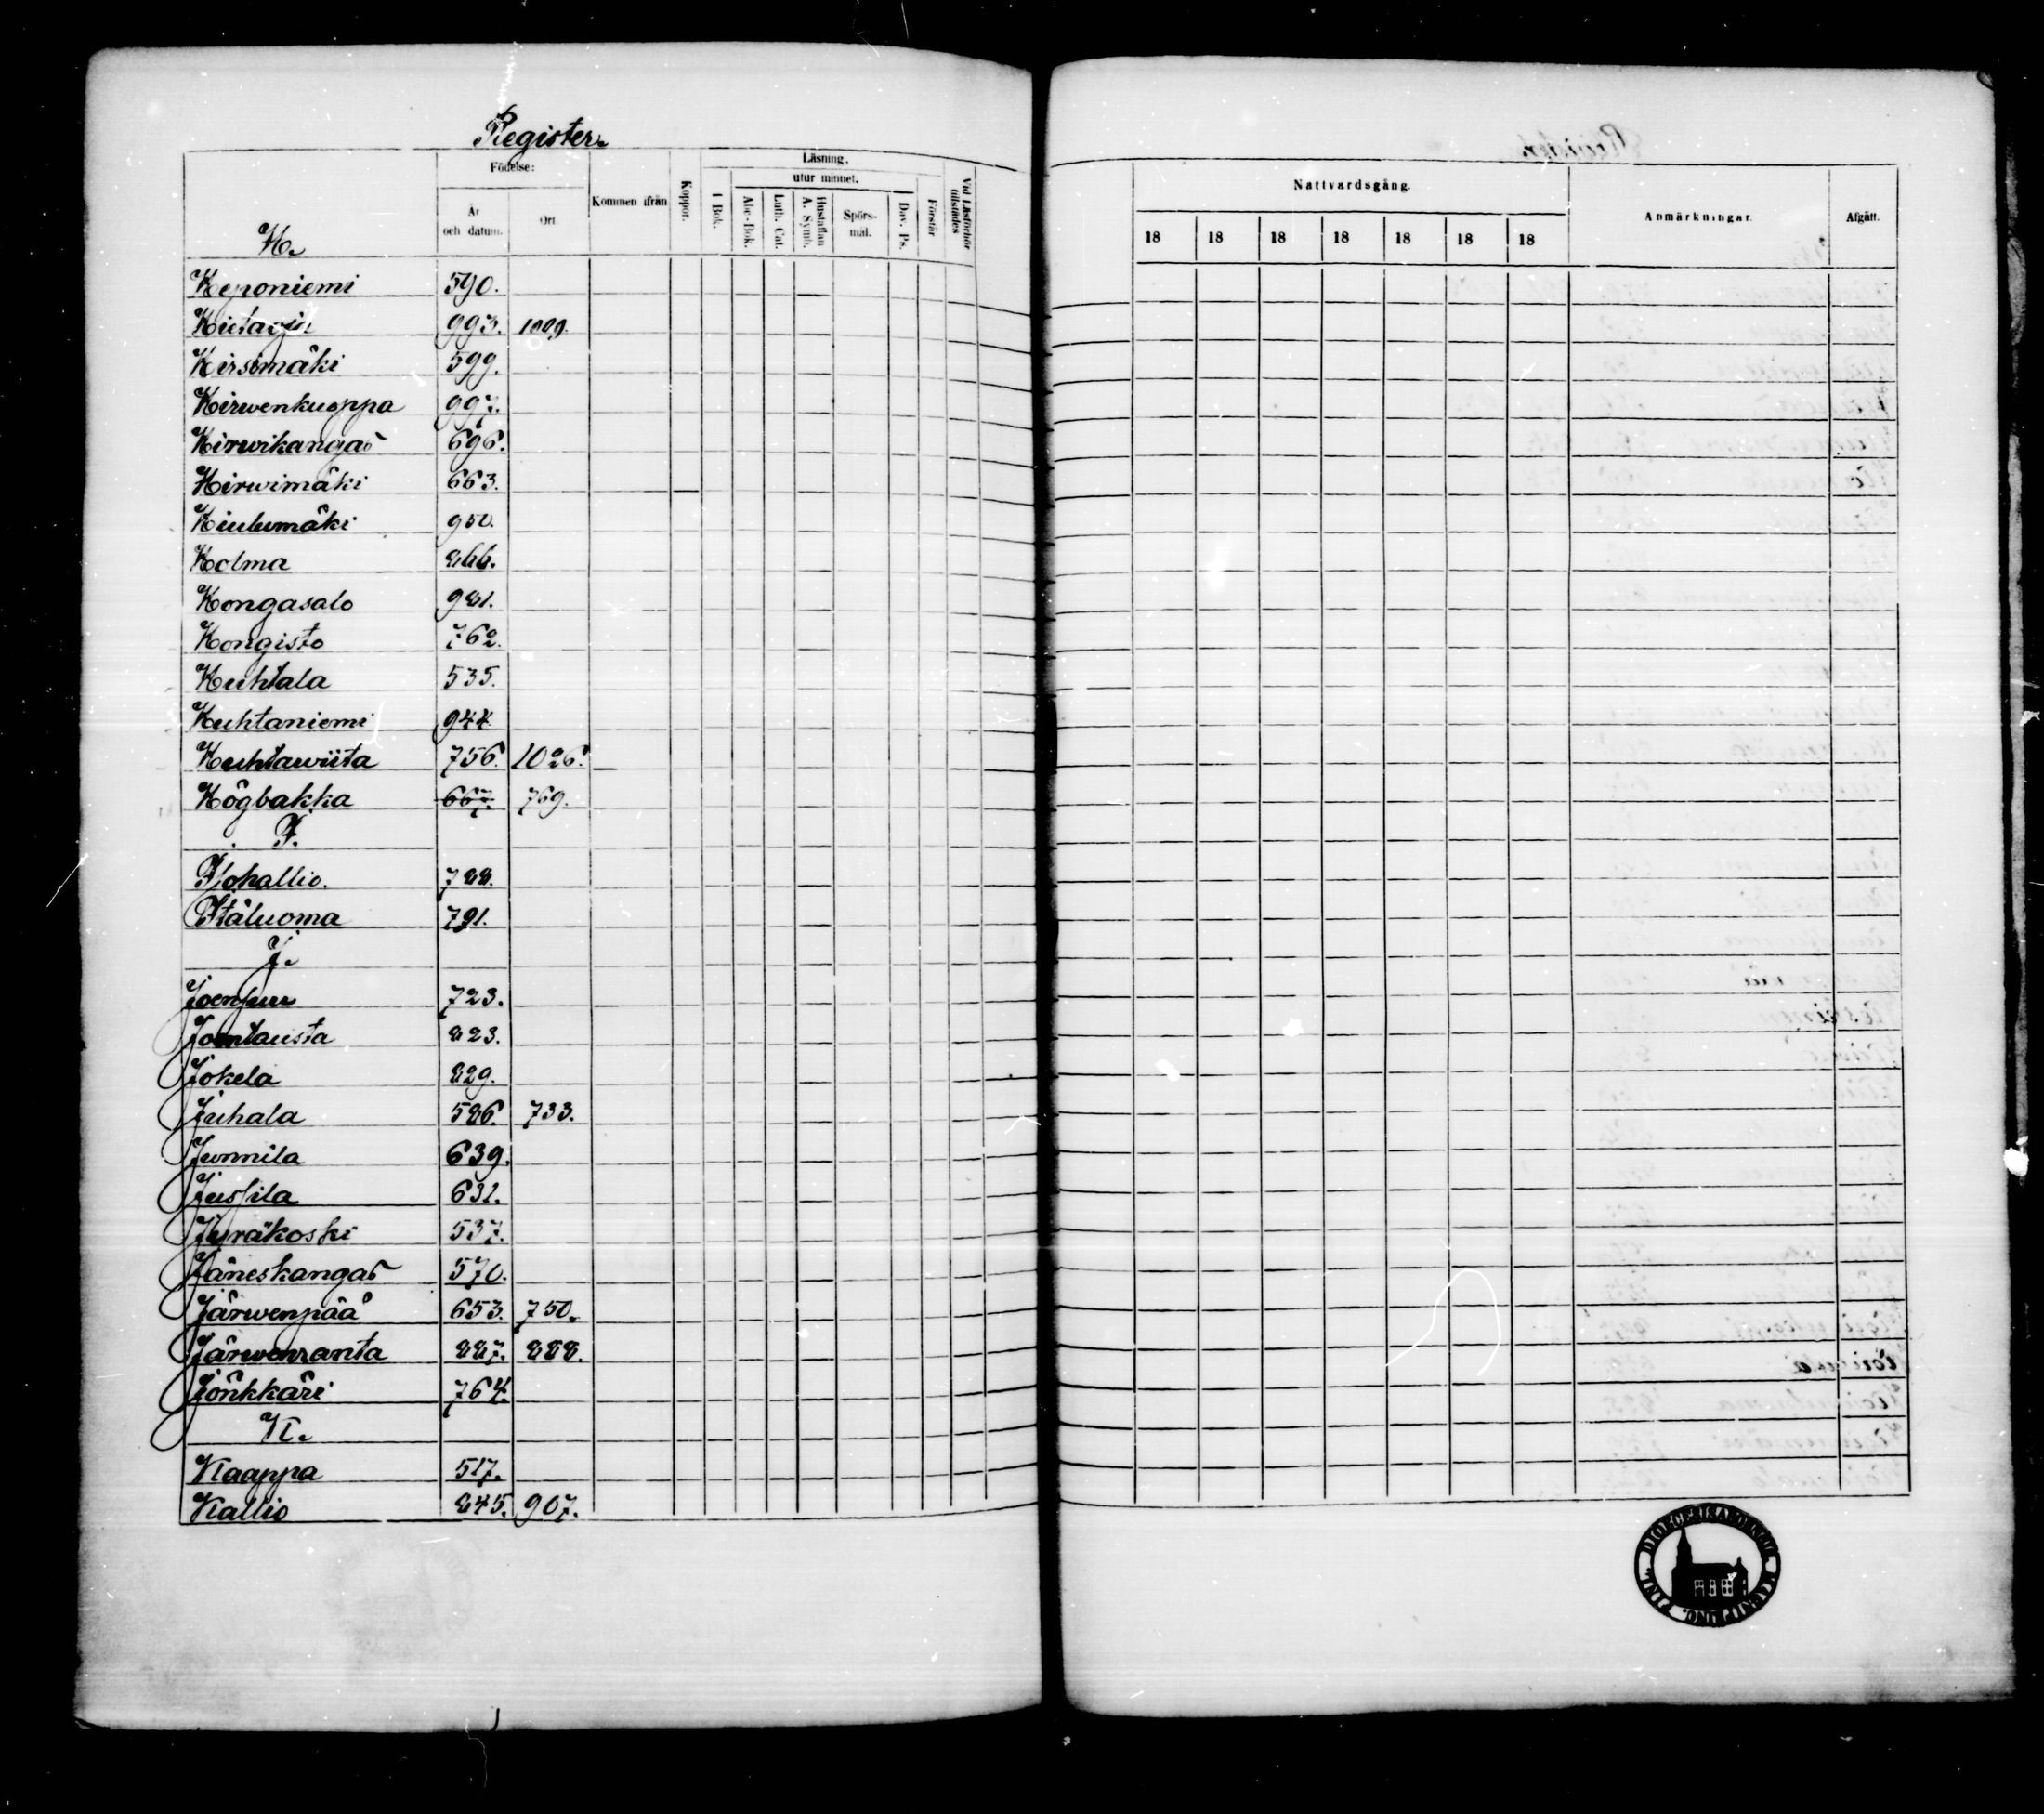 Register.
Födelse:
Läsning.
utur minnet.
År och datum.
Ort.
Kommen ifrån
Koppor.
I Bok.
Abc-Bok.
Luth. Cat.
Hustaflan A. Symb.
Spörs-mål.
Dav. Ps.
Förstår
Vid Läsförhör tillstädes
Nattvardsgång.
Anmärkningar.
Afgått.
18 18 18 18 18 18 18
H.
Heponiemi 590.
993. 1009.
Hirsimäki 599.
Hirwenkuoppa 997.
Hirwikangas 696.
Hirwimäki 663.
Hiulumäki 950.
Holma 866.
Hongasalo 981.
Hongisto 762.
Huhtala 535.
Huhtaniemi 944.
Huhtawiita 756. 1026.
Högbakka 667. 769.
I.
Isohallio. 788.
Itäluoma 791.
J.
Joensuu 723.
Jountausta 823.
Jokela 829.
Juhala 586. 733.
Junnila 639.
Jussila 631.
Jyräkoski 537.
Jäneskangas 570.
Järwenpää 653. 750.
Järwenranta 887. 888.
Jönkkäri 764.
K.
Kaappa 517.
Kallio 845. 907.